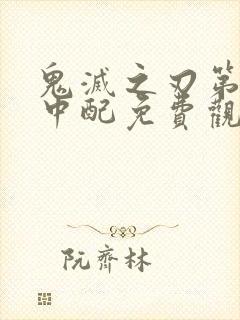 鬼滅之刃第
中配免費觀
阮齊林